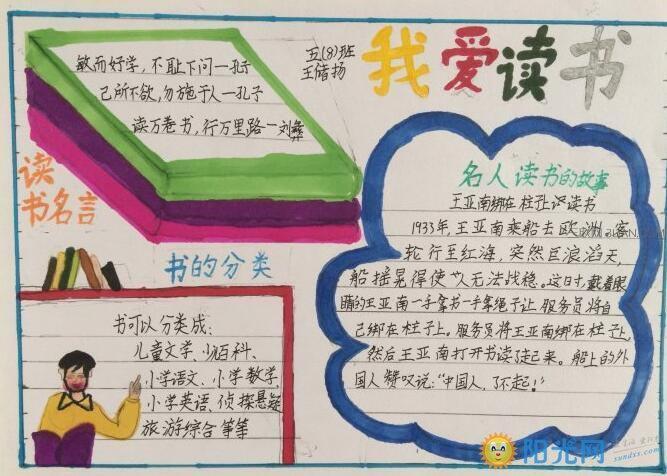 我爱读书
五(8)班
王储扬
敏而好学，不耻下问一孔子
己所不欲，勿施于人一孔子
读万卷书，行万里路一刘彝
读
书名言
书的分类
书可以分类成：
儿童文学、少百科、
小学语文、小学数学、
小学英语、侦探悬疑
旅游综合等等
名人读书的故事
王亚南绑在柱子上读书
1933年，王亚南乘船去欧洲。客
轮行至红海，突然巨浪滔天，
船摇晃得使人无法战稳。这时，戴着眼
睛的王亚南一手拿书一手拿绳子让服务员将自
己绑在柱子上。服务员将王亚南绑在柱子上，
然后王亚南打开书读起来。船上的外
国人赞叹说："中国人，了不起！"
阳光网
sundxs.com